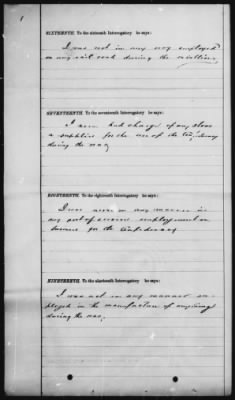 SIXTEENTH. To the sixteenth Interrogatory he says:
I was not in any way employed
on any rail road during the rebellion
SEVENTEENTH. To the seventeenth Interrogatory he says:
I never had charge of any stores
or supplies for the use of the Confederacy
during the war,
EIGHTEENTH. To the eighteenth Interrogatory he says:
I was never in any manner in
any employment or
service for the Confederacy
NINETEENTH. To the nineteenth Interrogatory he says:
I was not in any manner em-
ployed in the manufacture of anything
during the war,